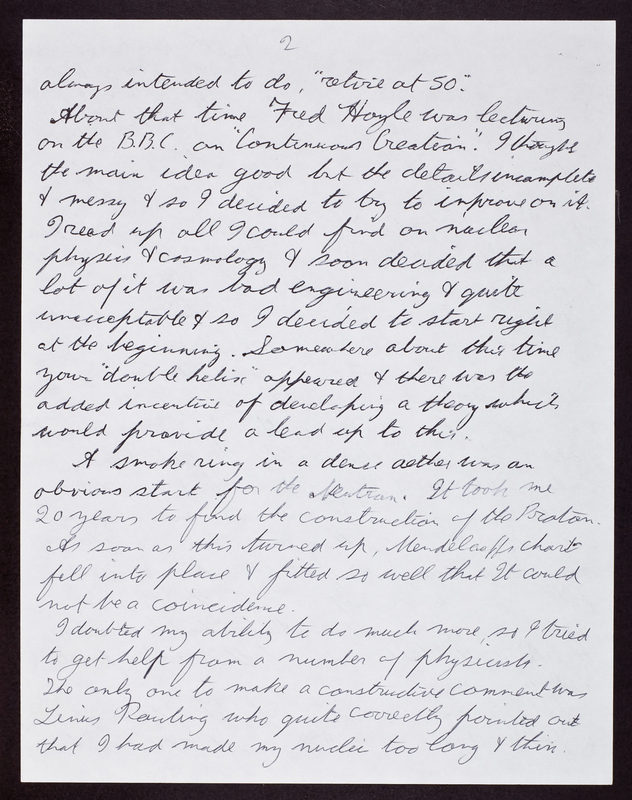 2
always intended to do, "retire at 50".
About that time Fred Hoyle was lecturing
on the B.B.C. on "Continuous Creation". I thought
the main idea good but the details incomplete
& messy & so I decided to try to improve on it.
I read up all I could find on nuclear
physics & cosmology & soon decided that a
lot of it was bad engineering & quite
unacceptable & so I decided to start right
at the beginning. Somewhere about this time
your "double helix" appeared & there was the
added incentive of developing a theory which
would provide a lead up to this.
A smoke ring in a dense aether was an
obvious start for the Neutron. It took me
20 years to find the construction of the Proton.
As soon as this turned up, Mendeleeffs chart
fell into place & fitted so well that It could
not be a coincidence.
I doubted my ability to do much more, so I tried
to get help from a number of physicists.
The only one to make a constructive comment was
Linus Pauling who quite correctly pointed out
that I had made my nuclei too long & thin.